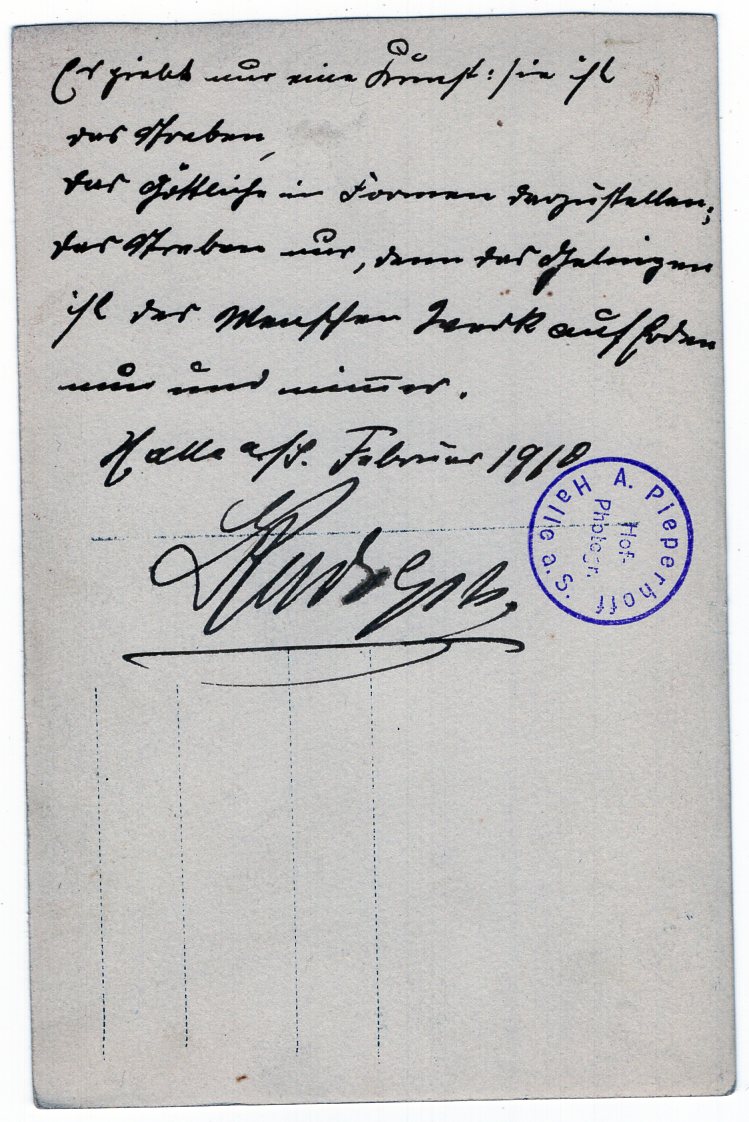 Es giebt nur eine Kunst: sie ist
das Streben,
das Göttliche in Formen darzustellen;
das Streben nur, denn das Gelingen
ist des Menschen Werk auf Erden
nun und nimmer.
Halle a/S. Februar 1918
A. Pieperhoff Halle a. S.
Hof-
Photogr.